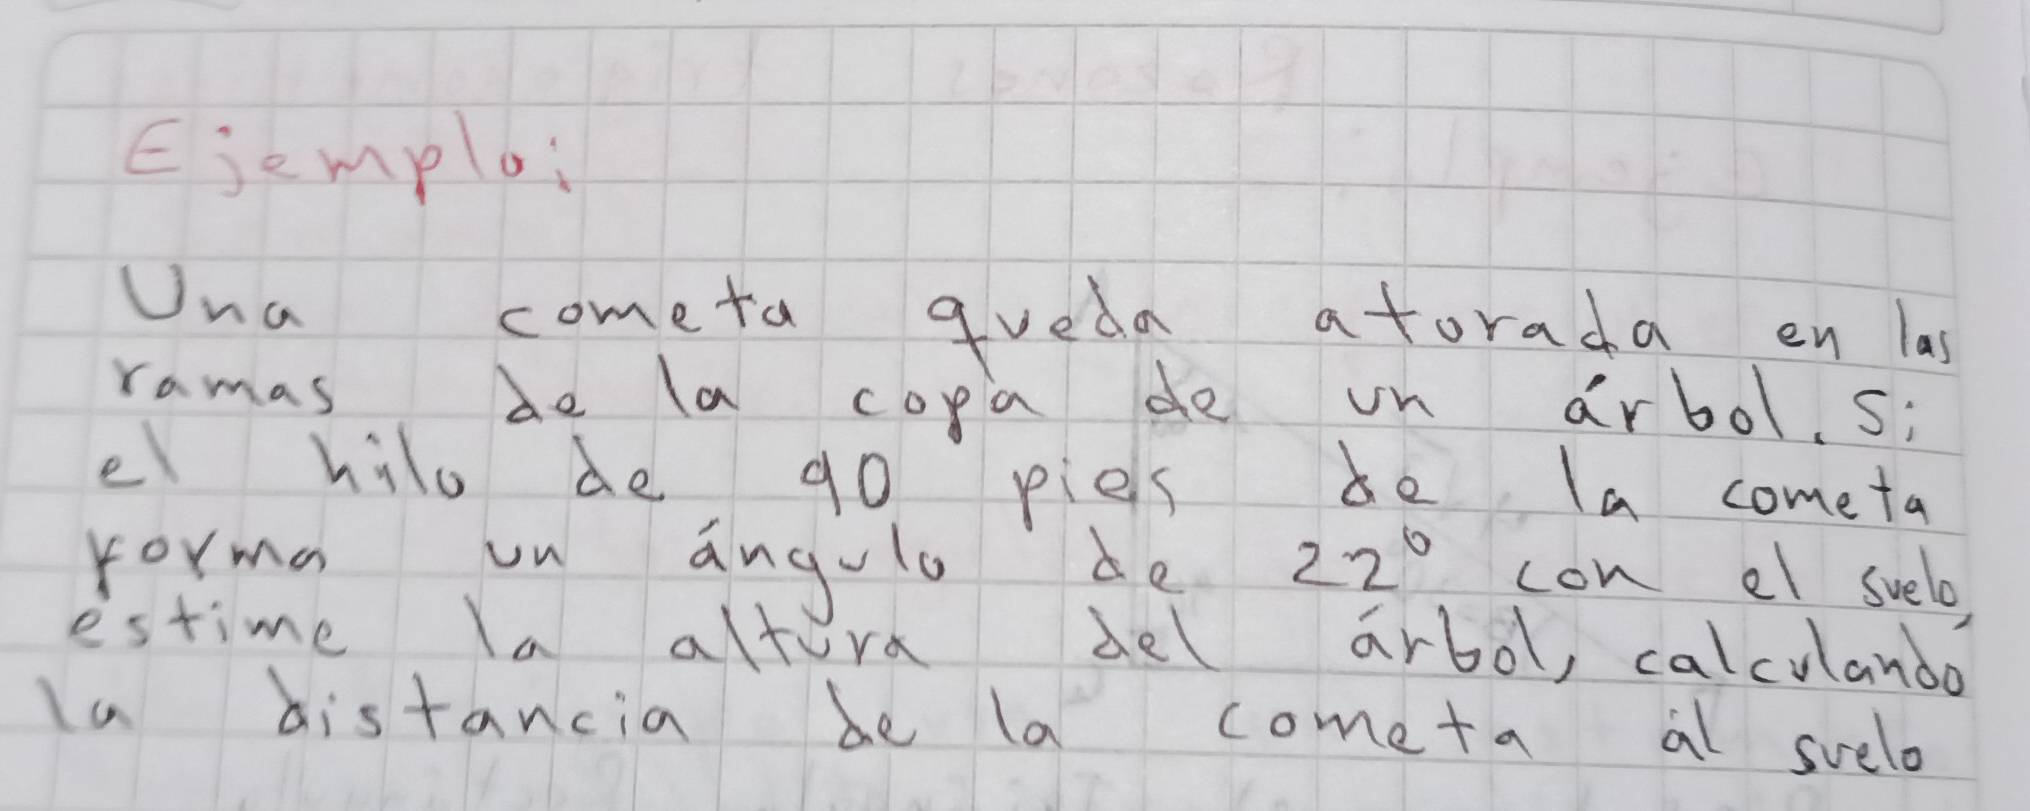 Ejemplo:
Una cometa queda atorada en las
ramas de la copa de un árbol. Si
el hilo de 90 pies de la cometa
forma un ángulo de 22° con el suelo,
estime la altura del árbol, calculando
la distancia de la cometa al suelo